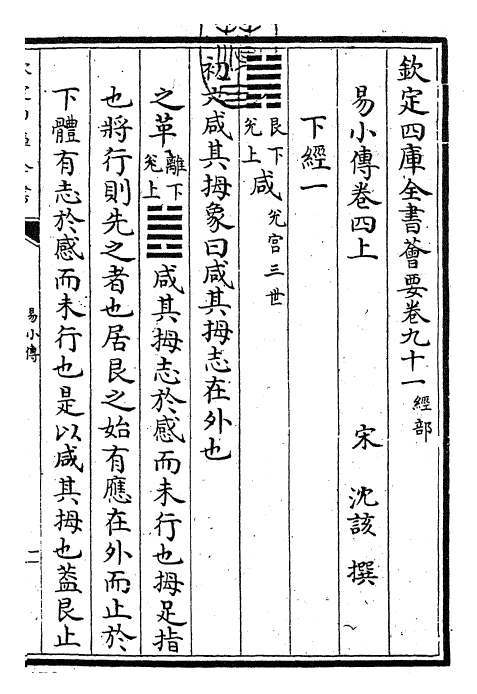 欽定四庫全書薈要卷九十一經部
易小傳卷四上
宋 沈該 撰
下經一
䷞艮下兌上咸兌宮三世
初六咸其拇象曰咸其拇志在外也
之革離下兌上䷰咸其拇志於感而未行也拇足指
也將行則先之者也居艮之始有應在外而止於
下體有志於感而未行也是以咸其拇也蓋艮止
易小傳
二